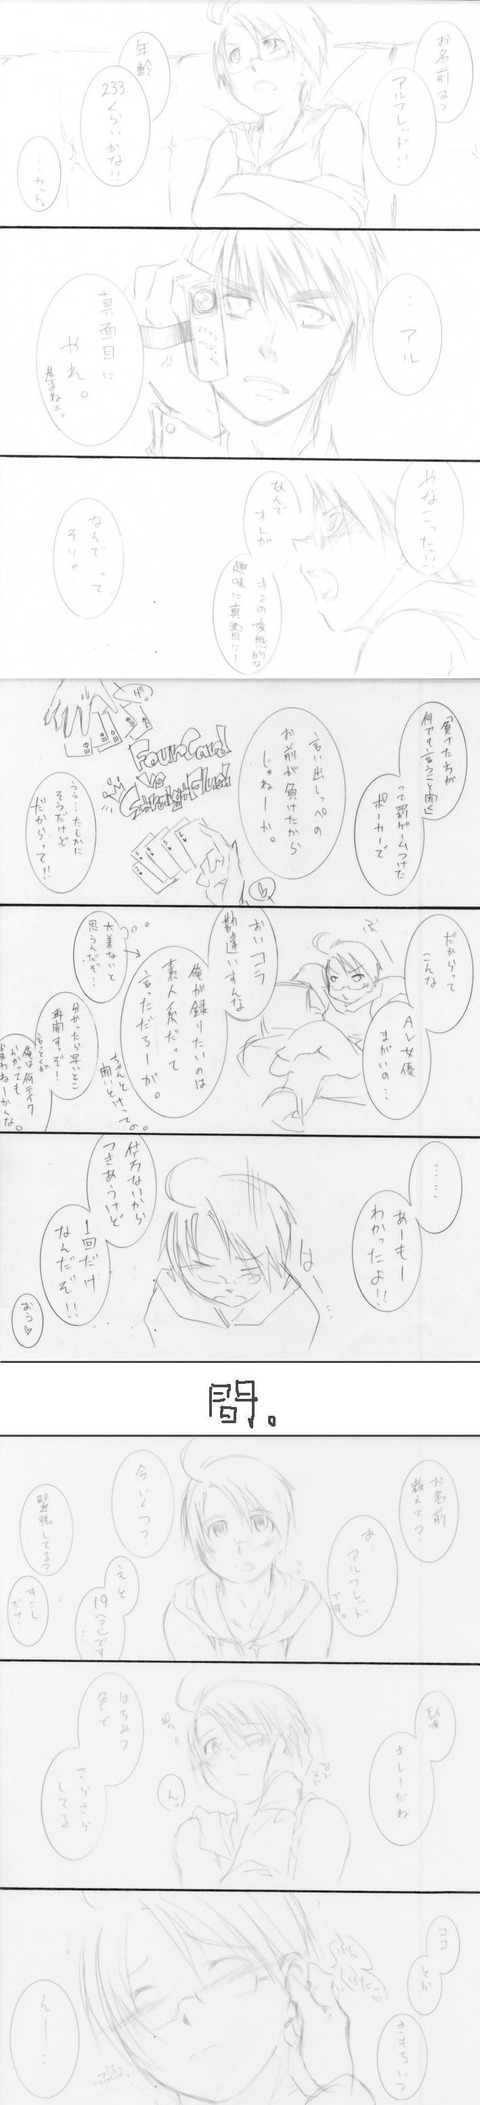 お名前は?
アルフレッド!!
年齢
233
くらいかな!!
…アル
真面目に
やれ。
やなこった!!
なんで
オレが
キミの変態的な
趣味に真面目に!
なんでって
そりゃ
「負けた方が
何でも言うこと聞く」
って罰ゲームつけた
ポーカーで
言い出しっぺの
お前が負けたから
じゃねーか。
Four Card
VS
Straight Flush
うぅ…たしかに
そうだけど
だからって!!
だからって
こんな
AV女優
まがいの…
おいコラ
勘違いすんな
俺が録りたいのは
素人系だって
言っただろーが。
ちゃんとけってよ。
大差ないと
思うんだぞ…
分かったら早いとこ
再開すっぞ!
言っとくが
俺は何テイク
かかっても
かまわねーかんな。
……
あーもー
わかったよ!!
は
仕方ないから
つきあうけど
1回だけ
なんだぞ!!
おう♡
間。
お名前
教えて?
あ…
アルフレッド
です。
今いくつ?
えと
19才です
…
緊張してる?
すこし
だけ…
髪
キレーだね
はちみつ
色で
さらさら
してる
んっ
ココ
とか
きもちいい
んー…